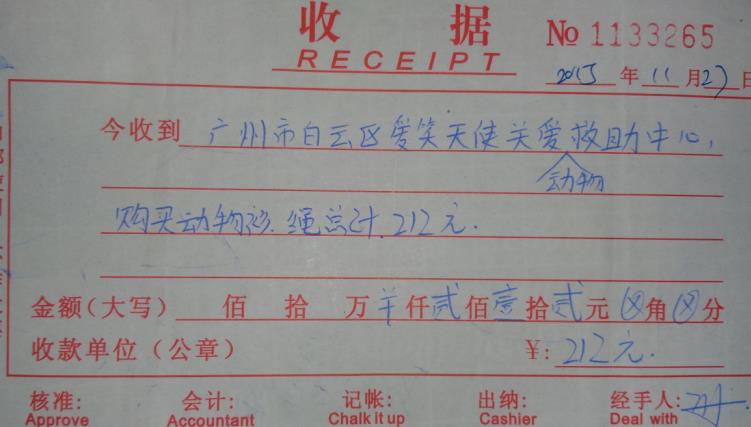 收 据
RECEIPT
No 1133265
2015 年 11 月 27 日
今收到 广州市白云区爱笑天使关爱救助中心,
动物
购买动物 绳总计.212元.
金额(大写) 佰 拾 万 羊 仟 贰 佰 壹 拾 贰 元 ⊗ 角 ⊗ 分
收款单位(公章) ¥: 212元.
核准: 会计: 记帐: 出纳: 经手人:
Approve Accountant Chalk it up Cashier Deal with